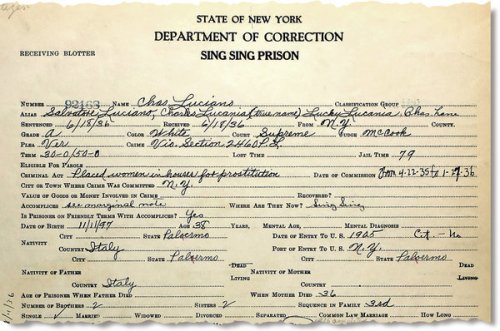 STATE OF NEW YORK
DEPARTMENT OF CORRECTION
RECEIVING BLOTTER SING SING PRISON
NUMBER 92168 NAME Chas Luciano CLASSIFICATION GROUP
ALIAS Salvatore Luciano, Charles Lucania (true name) Lucky Lucania, Chas Lane
SENTENCED 6/18/36 RECEIVED 6/18/36 FROM N.Y. COUNTY.
GRADE A COLOR White COURT Supreme JUDGE McCook
PLEA Ver CRIME Vio. Section 2460 P.L.
TERM 30-0/50-0 LOST TIME JAIL TIME 79
ELIGIBLE FOR PAROLE
CRIMINAL ACT Placed women in house for prostitution DATE OF COMMISSION From 4-22-35 to 1-36
CITY OR TOWN WHERE CRIME WAS COMMITTED N.Y.
VALUE OF GOODS OR MONEY INVOLVED IN CRIME RECOVERED?
ACCOMPLICES see marginal note WHERE ARE THEY NOW? Sing Sing
IS PRISONER ON FRIENDLY TERMS WITH ACCOMPLICES? Yes
DATE OF BIRTH 11/11/97 AGE 38 YEARS, MENTAL AGE, MENTAL DIAGNOSIS
NATIVITY CITY STATE Palermo DATE OF ENTRY TO U. S. 1905 Cit. - No
COUNTRY Italy PORT OF ENTRY TO U. S. N.Y.
CITY STATE Palermo CITY STATE Palermo
NATIVITY OF FATHER DEAD LIVING NATIVITY OF MOTHER DEAD LIVING
COUNTRY Italy COUNTRY
AGE OF PRISONER WHEN FATHER DIED WHEN MOTHER DIED 36
NUMBER OF BROTHERS 2 SISTERS 2 SEQUENCE IN FAMILY 3rd
SINGLE MARRIED WIDOWED DIVORCED SEPARATED COMMON LAW MARRIAGE HOW LONG